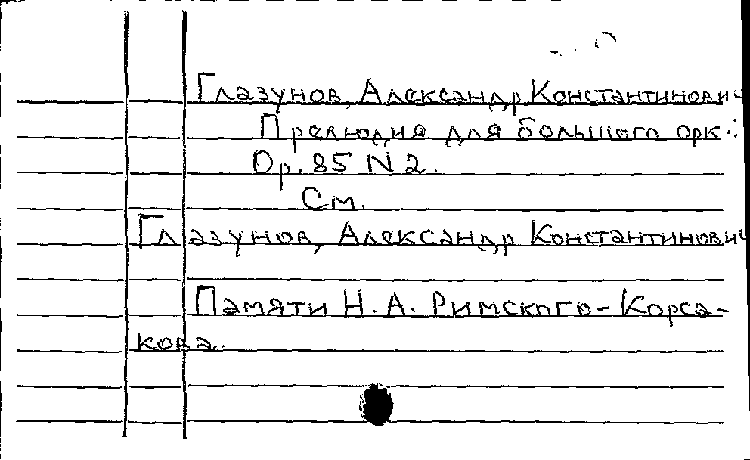 Глазунов, Александр Константинович
Прелюдия для большого орк.:
Op. 85 N 2.
См.
Глазунов, Александр Константинович
Памяти Н. А. Римского-Корса-
кова.